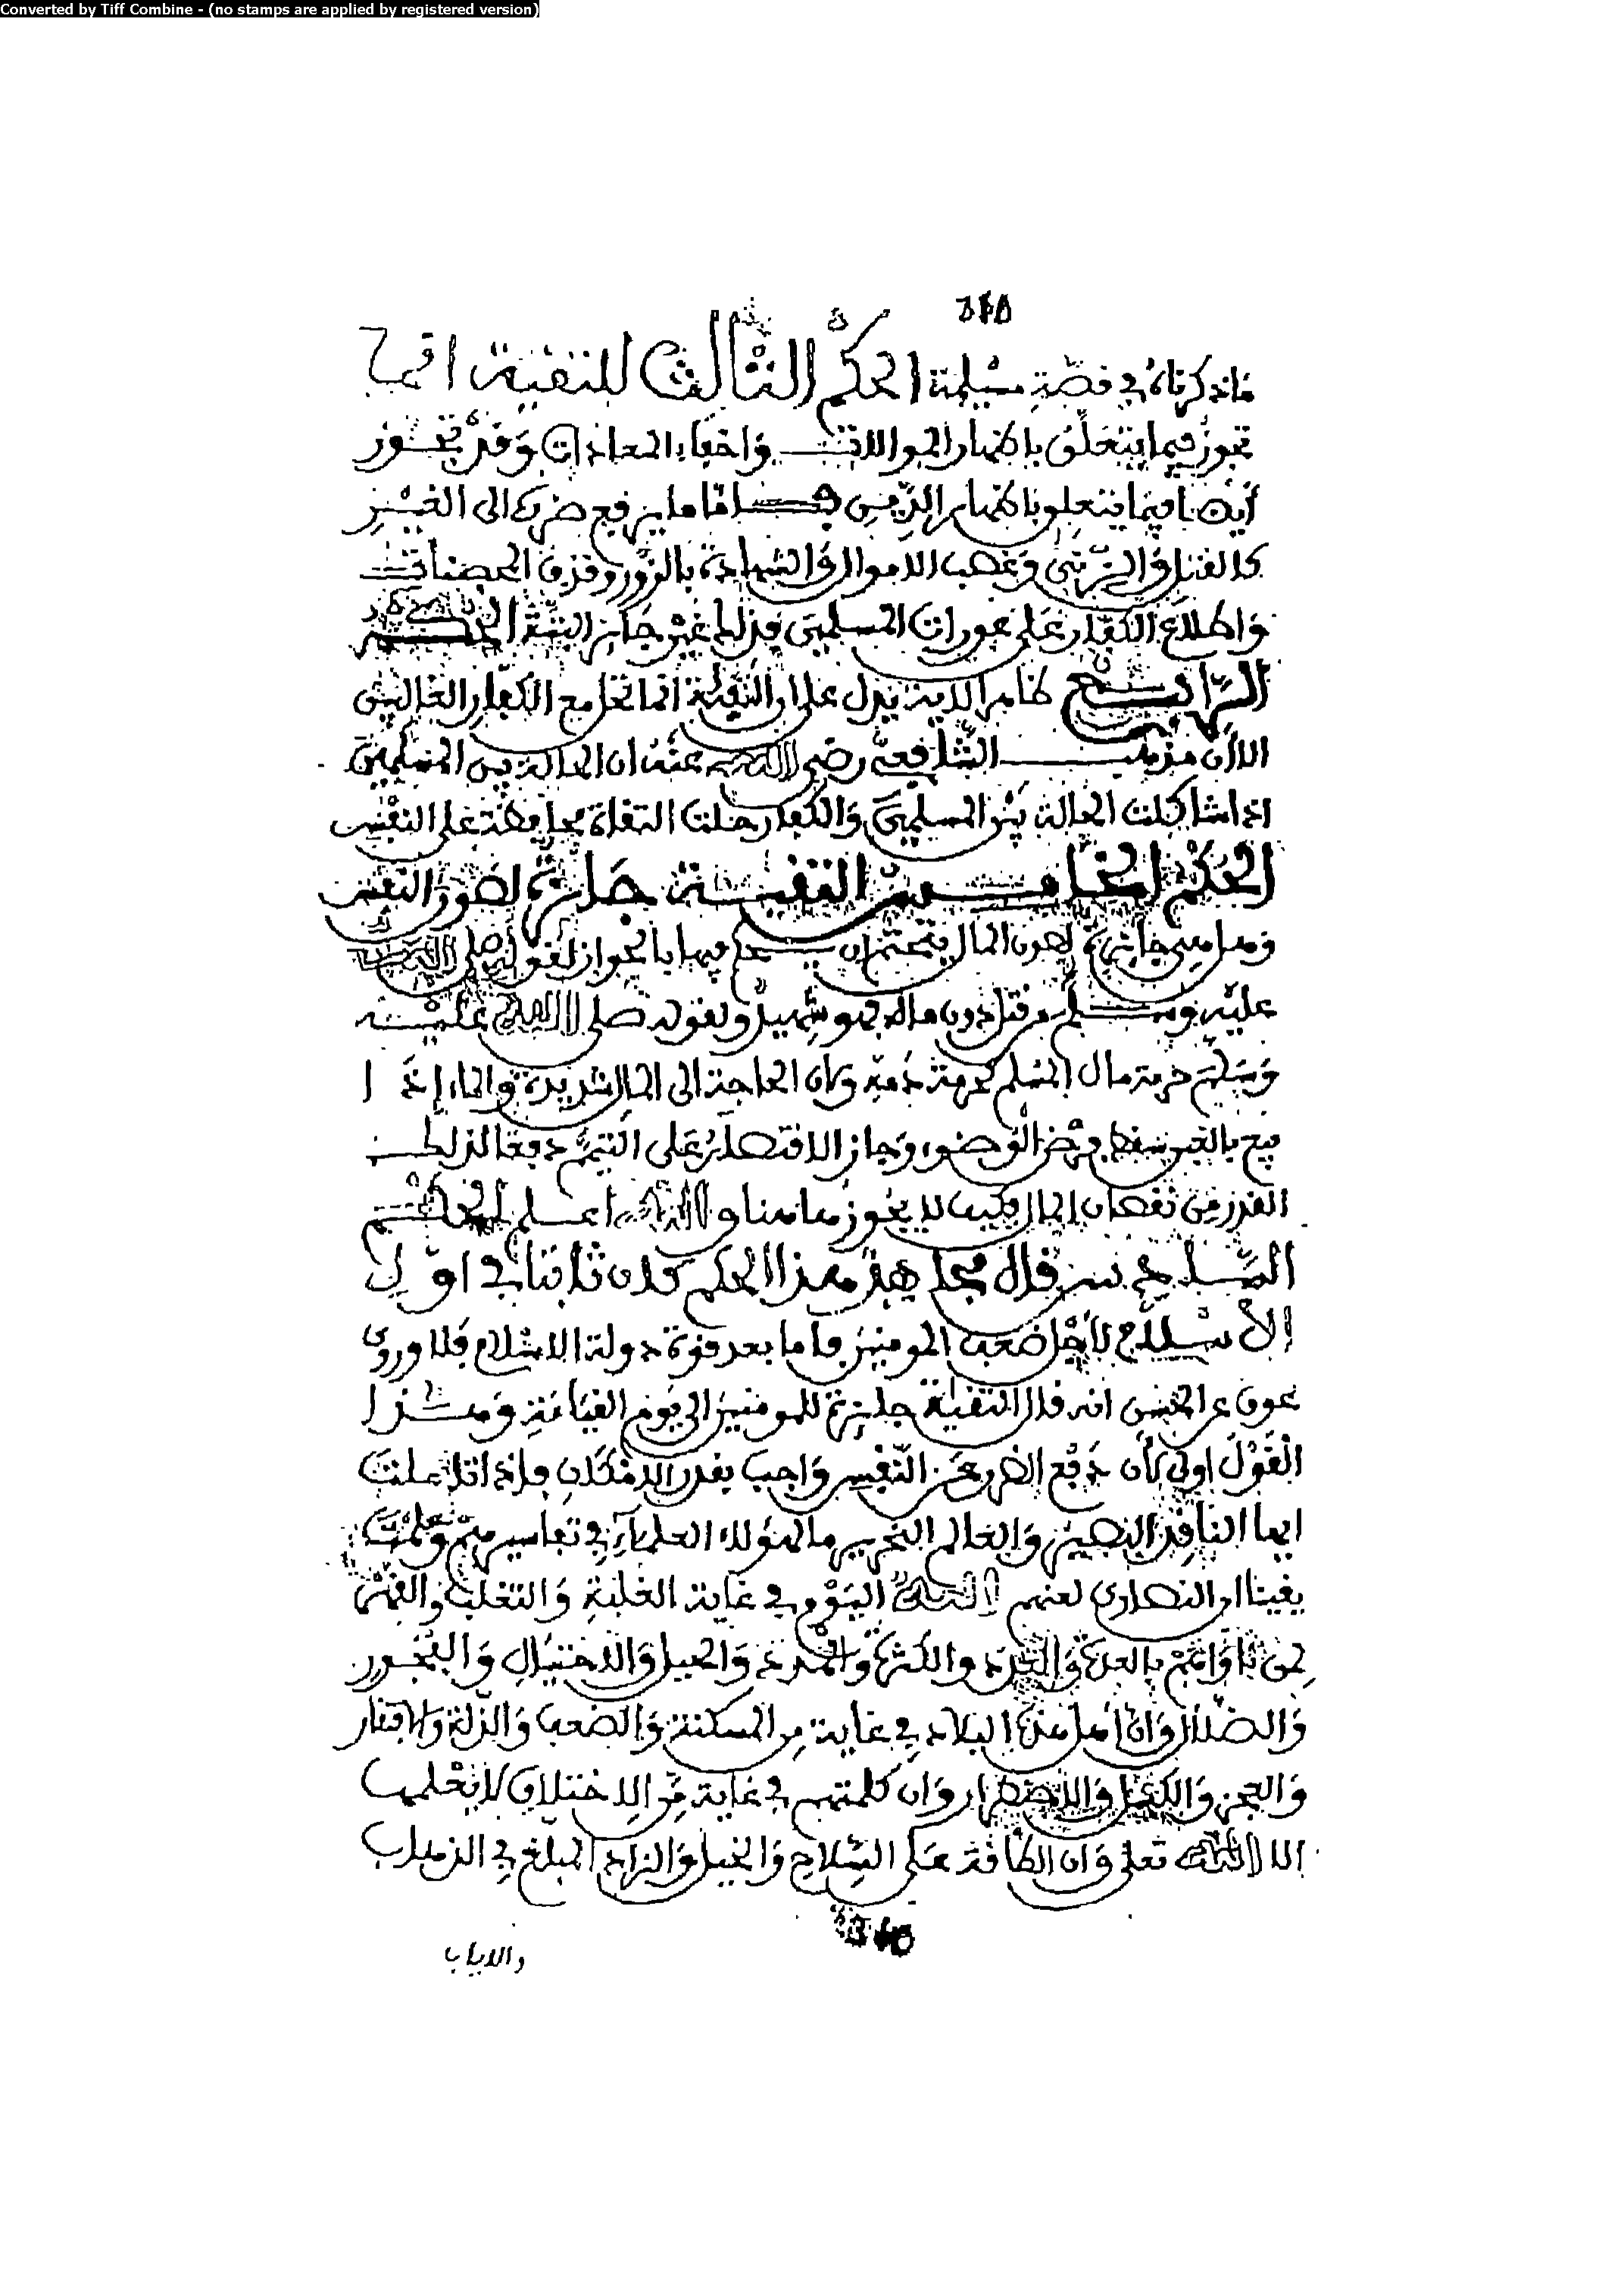 Converted by Tiff Combine - (no stamps are applied by registered version)
ما ذكرناه في قصة مسيلمة الحكم الثالث للتقية انما
تجوز فيما يتعلق باظهار الموالات واخفاء المعادات وقد تجوز
أيضا فيما يتعلق باظهار الدين فاما ما يرجع ضره الى الغير
كالقتل والزنى وغصب الاموال والشهادة بالزور وقذف المحصنات
واطلاع الكفار على عورات المسلمين فذلك غير جائز البتة الحكم
الرابع ظاهر الاية يدل على ان التقية انما تحل مع الكفار الغالبين
الا ان مذهب الشافعي رضي الله عنه ان الحالة بين المسلمين
اذا شاكلت الحالة بين المسلمين والكفار حلت التقاة محافظة على النفس
الحكم الخامس التقية جائزة لصون النفس
وهل هي جائزة لصون المال يحتمل ان يحكم فيها بالجواز لقوله صلى الله
عليه وسلم من قتل دون ماله فهو شهيد ولقوله صلى الله عليه
وسلم حرمة مال المسلم كحرمة دمه ولان الحاجة الى المال شديدة والماء إذا
بيع بالغبن سقط فرض الوضوء وجاز الاقتصار على التيمم دفعا لذلك
القدر من نقصان المال فكيف لا يجوز هاهنا والله اعلم الحكم
السادس قال مجاهد هذا الحكم كان ثابتا في اول
الاسلام لأجل ضعف المومنين فاما بعد قوة دولة الاسلام فلا وروى
عوف عن الحسن انه قال التقية جائزة للمومنين الى يوم القيامة وهذا
القول اولى لأن دفع الضرر عن النفس واجب بقدر الامكان فاذا تاملت
ايها الناقد البصير والعالم النحرير ما لهؤلاء العلماء في تفاسيرهم وعلمت
يقينا ان النصارى لعنهم الله اليوم في غاية الغلبة والتغلب والقهر
لمن ناواهم بالعدة والعدد والكثرة والمدد والحيل والاحتيال والفجور
والضلال وان أهل هذه البلاد في غاية من المسكنة والضعف والذلة والافتقار
والعجز والاضطرار وان كلمتهم في غاية من الاختلاف لا يعلمها
الا الله تعلى وان الطاقة على السلاح والخيل والزاد المبلغ في الذهاب
والاياب